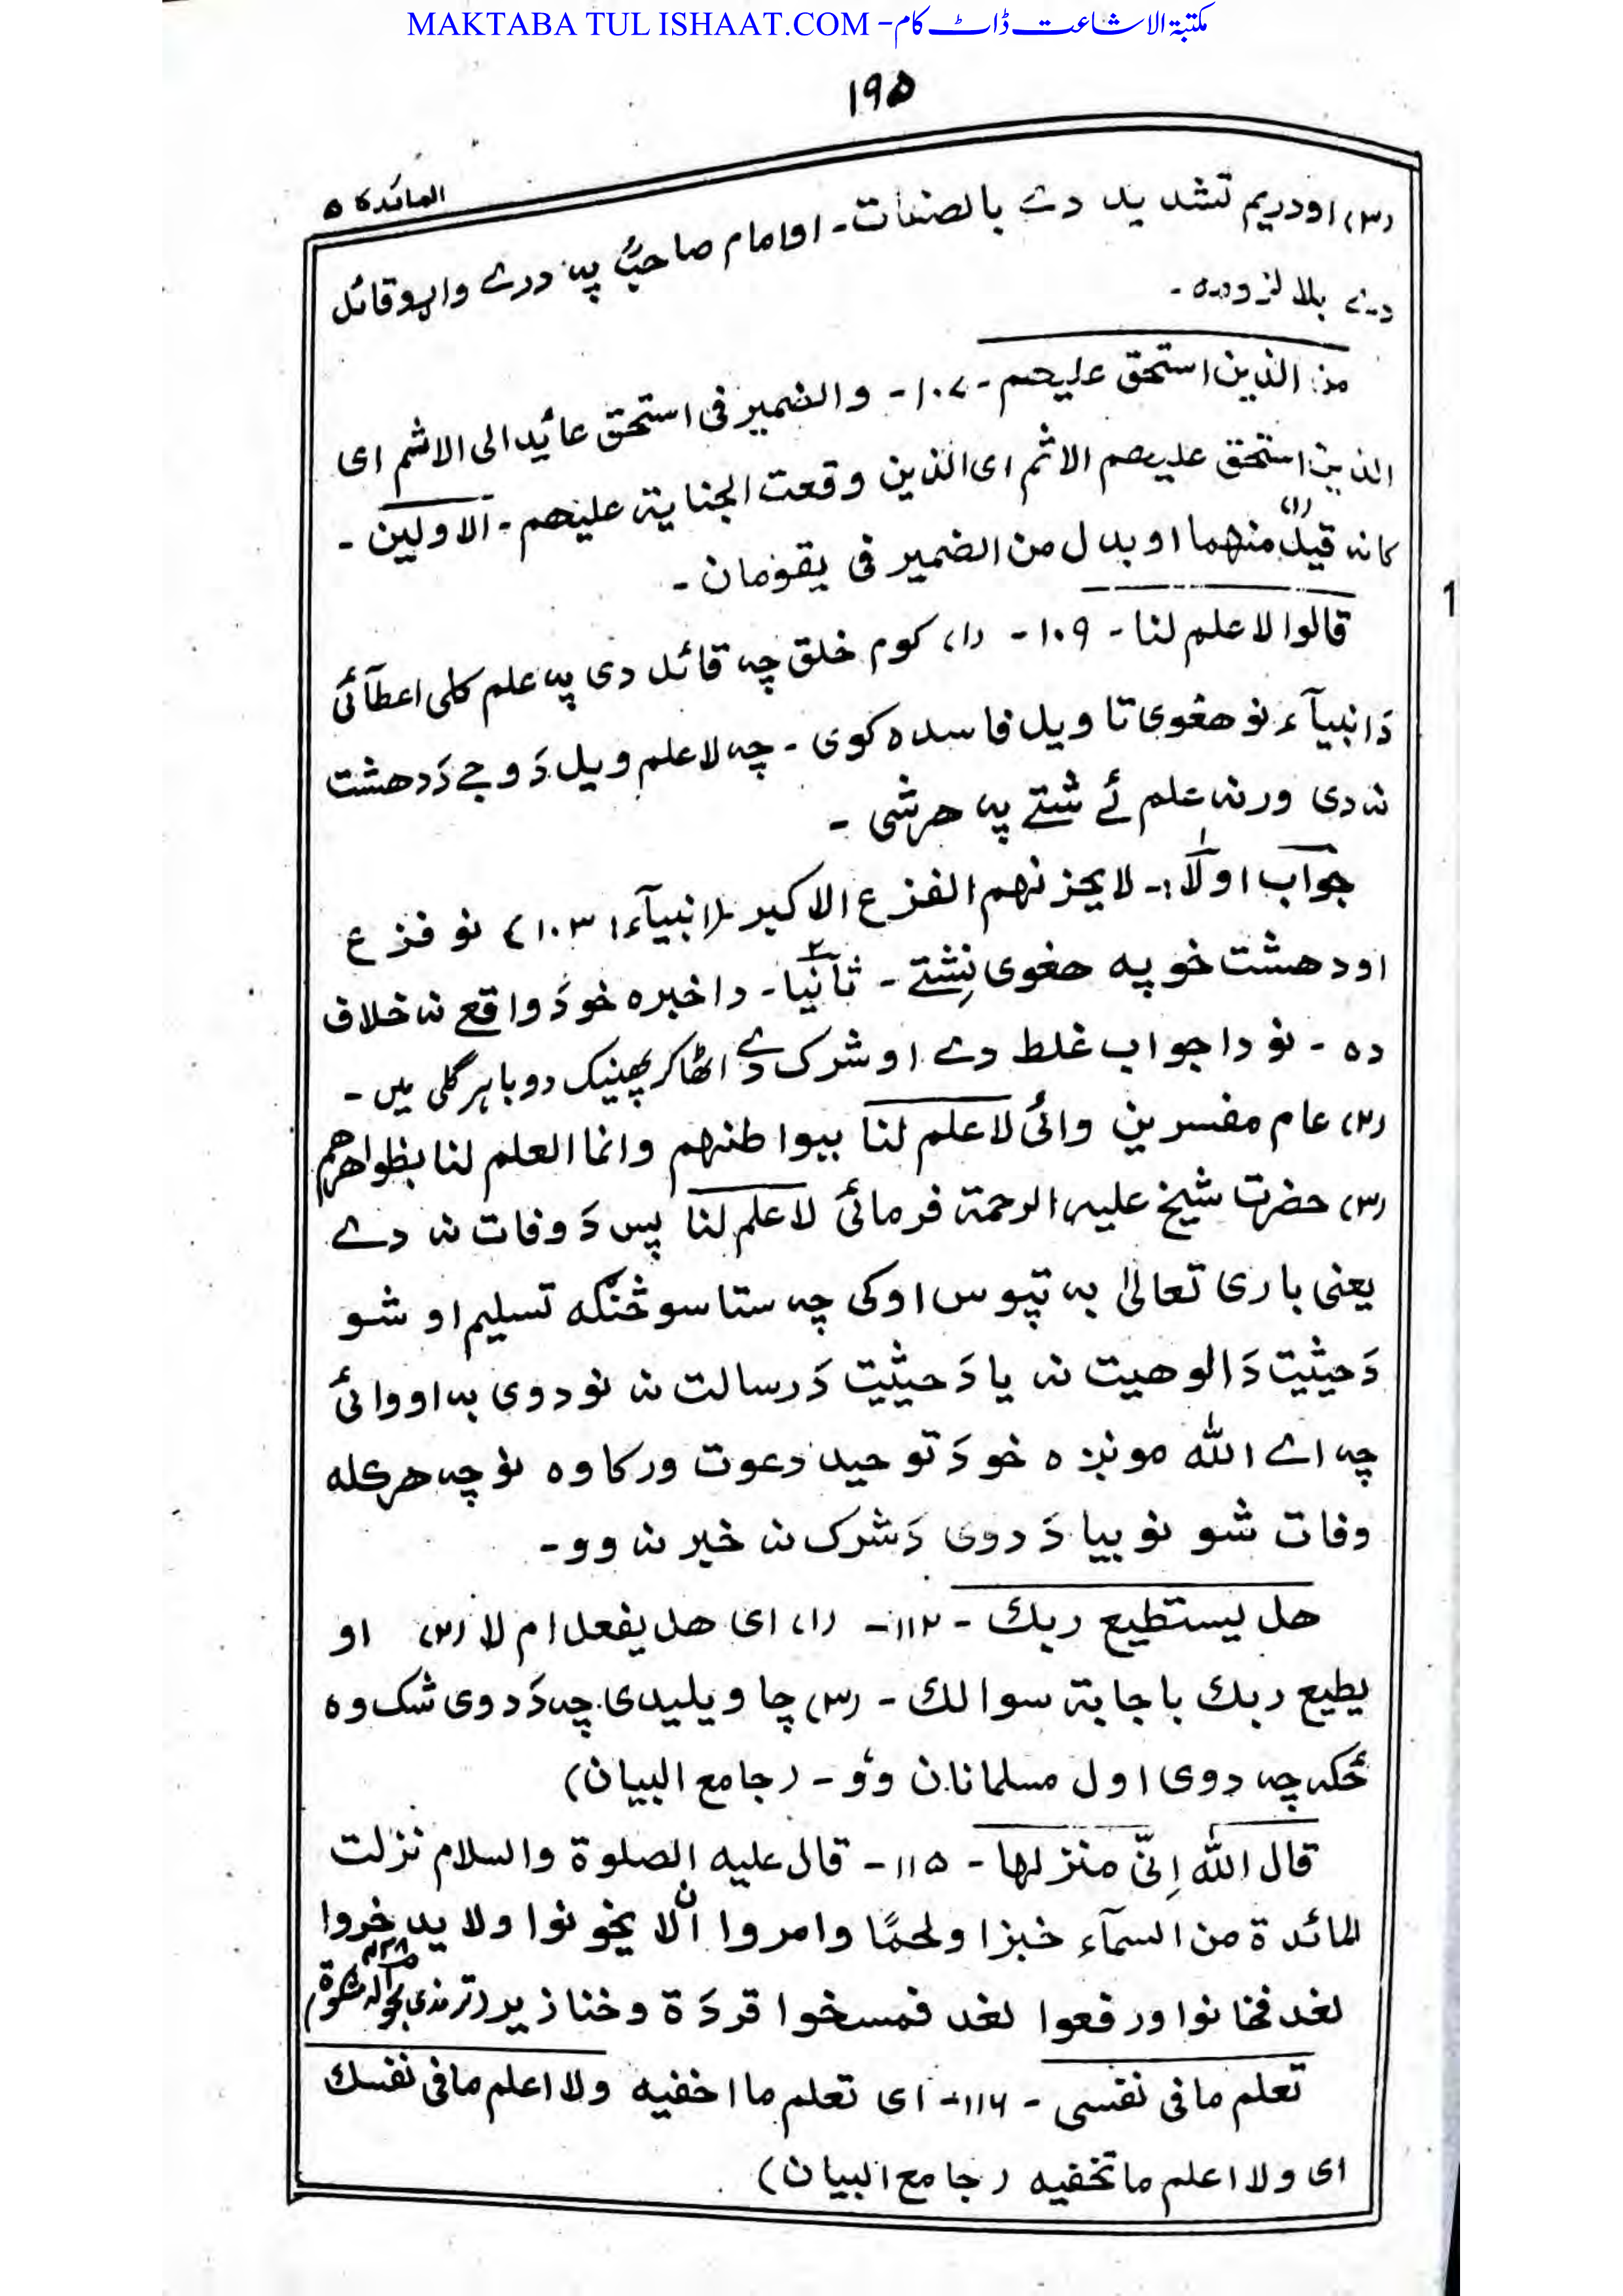 MAKTABA TUL ISHAAT.COM - مکتبۃ الاشاعت ڈاٹ کام
١٩۵
المائدة ۵
(٣) اودریم تشدید دے بالصفات۔ اوامام صاحبؒ پہ درے واړو قائل
دے بلا لزومہ۔
من الذین استحق علیهم۔ ١٠٧۔ والضمیر فی استحق عائد الی الاثم ای
الذین استحق علیهم الاثم ای الذین وقعت الجنایة علیهم۔ الاولین۔
کانه قیل منهما او بدل من الضمیر فی یقومان۔
قالوا لا علم لنا۔ ١٠٩۔ (١) کوم خلق چہ قائل دی پہ علم کلی اعطآئی
دَ انبیآء نو هغوی تاویل فاسده کوی۔ چہ لا علم ویل دَ وجے دَ دهشت
نہ دی ورنہ علم ئے شتے پہ هرشی۔
جواب اولًا:۔ لا یحزنهم الفزع الاکبر (انبیآء ١٠٣) نو فزع
اودهشت خو پہ هغوی نِشتے۔ ثانیًا۔ داخبره خو دَ واقع نہ خلاف
ده۔ نو دا جواب غلط دے او شرک دے اٹھا کر پھینک دو باہر گلی میں۔
(٢) عام مفسرین وائی لا علم لنا ببواطنهم وانما العلم لنا بظواهرهم
(٣) حضرت شیخ علیہ الرحمة فرمائی لا علم لنا پس دَ وفات نہ دے
یعنی باری تعالیٰ بہ تپوس اوکی چہ ستاسو څنګه تسلیم او شو
دَ حیثیت دَ الوهیت نہ یا دَ حیثیت دَ رسالت نہ نو دوی بہ اووائی
چہ اے الله مونږه خو دَ توحید دعوت ورکاوه نو چہ هرکله
وفات شو نو بیا دَ دوی دَ شرک نہ خبر نہ وو۔
هل یستطیع ربك۔ ١١٢۔ (١) ای هل یفعل ام لا (٢) او
یطیع ربك باجابة سوالك۔ (٣) چا ویلیدی چہ دَ دوی شک وه
ځکہ چہ دوی اول مسلمانان وو۔ (جامع البیان)
قال الله اِنّی منزلها۔ ١١۵۔ قال علیه الصلوة والسلام نزلت
المائدة من السمآء خبزا ولحمًا وامروا ان لا یخونوا ولا یدخروا
لغد فخانوا ورفعوا لغد فمسخوا قردَة وخنازیر (ترمذی بحوالہ مشکوٰة)
تعلم مافی نفسی۔ ١١٦۔ ای تعلم ما اخفیه ولا اعلم مافی نفسك
ای ولا اعلم ماتخفیه (جامع البیان)